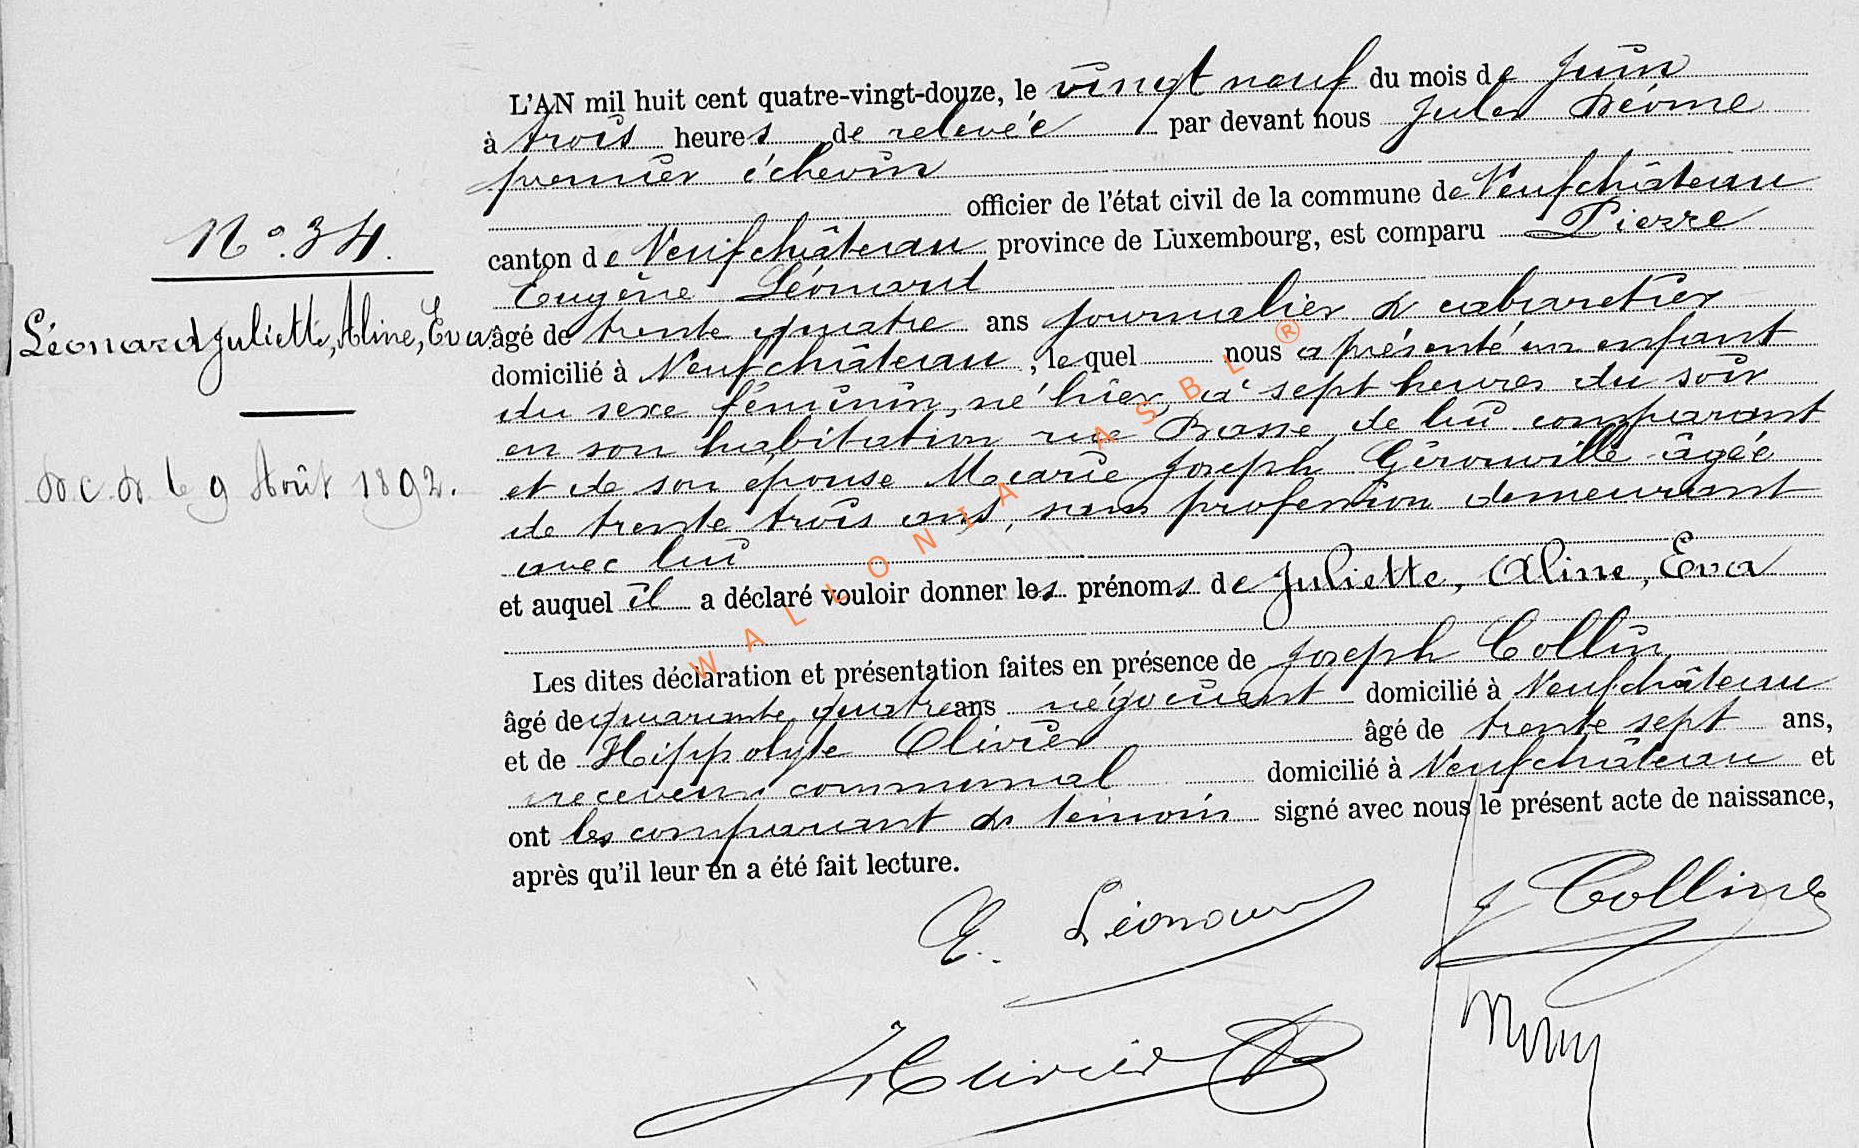 L'AN mil huit cent quatre-vingt-douze, le vingt neuf du mois de juin
à trois heures de relevée par devant nous Jules
premier échevin
officier de l'état civil de la commune de Neufchâteau
canton de Neufchâteau province de Luxembourg, est comparu Pierre
Eugène Léonard
âgé de trente quatre ans journalier & cabaretier
domicilié à Neufchâteau, lequel nous a présenté un enfant
du sexe féminin, né hier, à sept heures du soir
en son habitation rue Basse, de lui comparant
et de son épouse Marie Joseph Gérouville âgée
de trente trois ans, sans profession demeurant
avec lui
et auquel il a déclaré vouloir donner les prénoms de Juliette, Aline, Eva
Les dites déclaration et présentation faites en présence de Joseph Collin
âgé de quarante quatre ans négociant domicilié à Neufchâteau
et de Hippolyte Olivier âgé de trente sept ans,
receveur communal domicilié à Neufchâteau et
ont les comparant & témoins signé avec nous le présent acte de naissance,
après qu'il leur en a été fait lecture.
N° 34.
Léonard Juliette, Aline, Eva
le 9 Août 1892.
E. Léonard
J Collin
H Olivier
WALLONIA ASBL ®